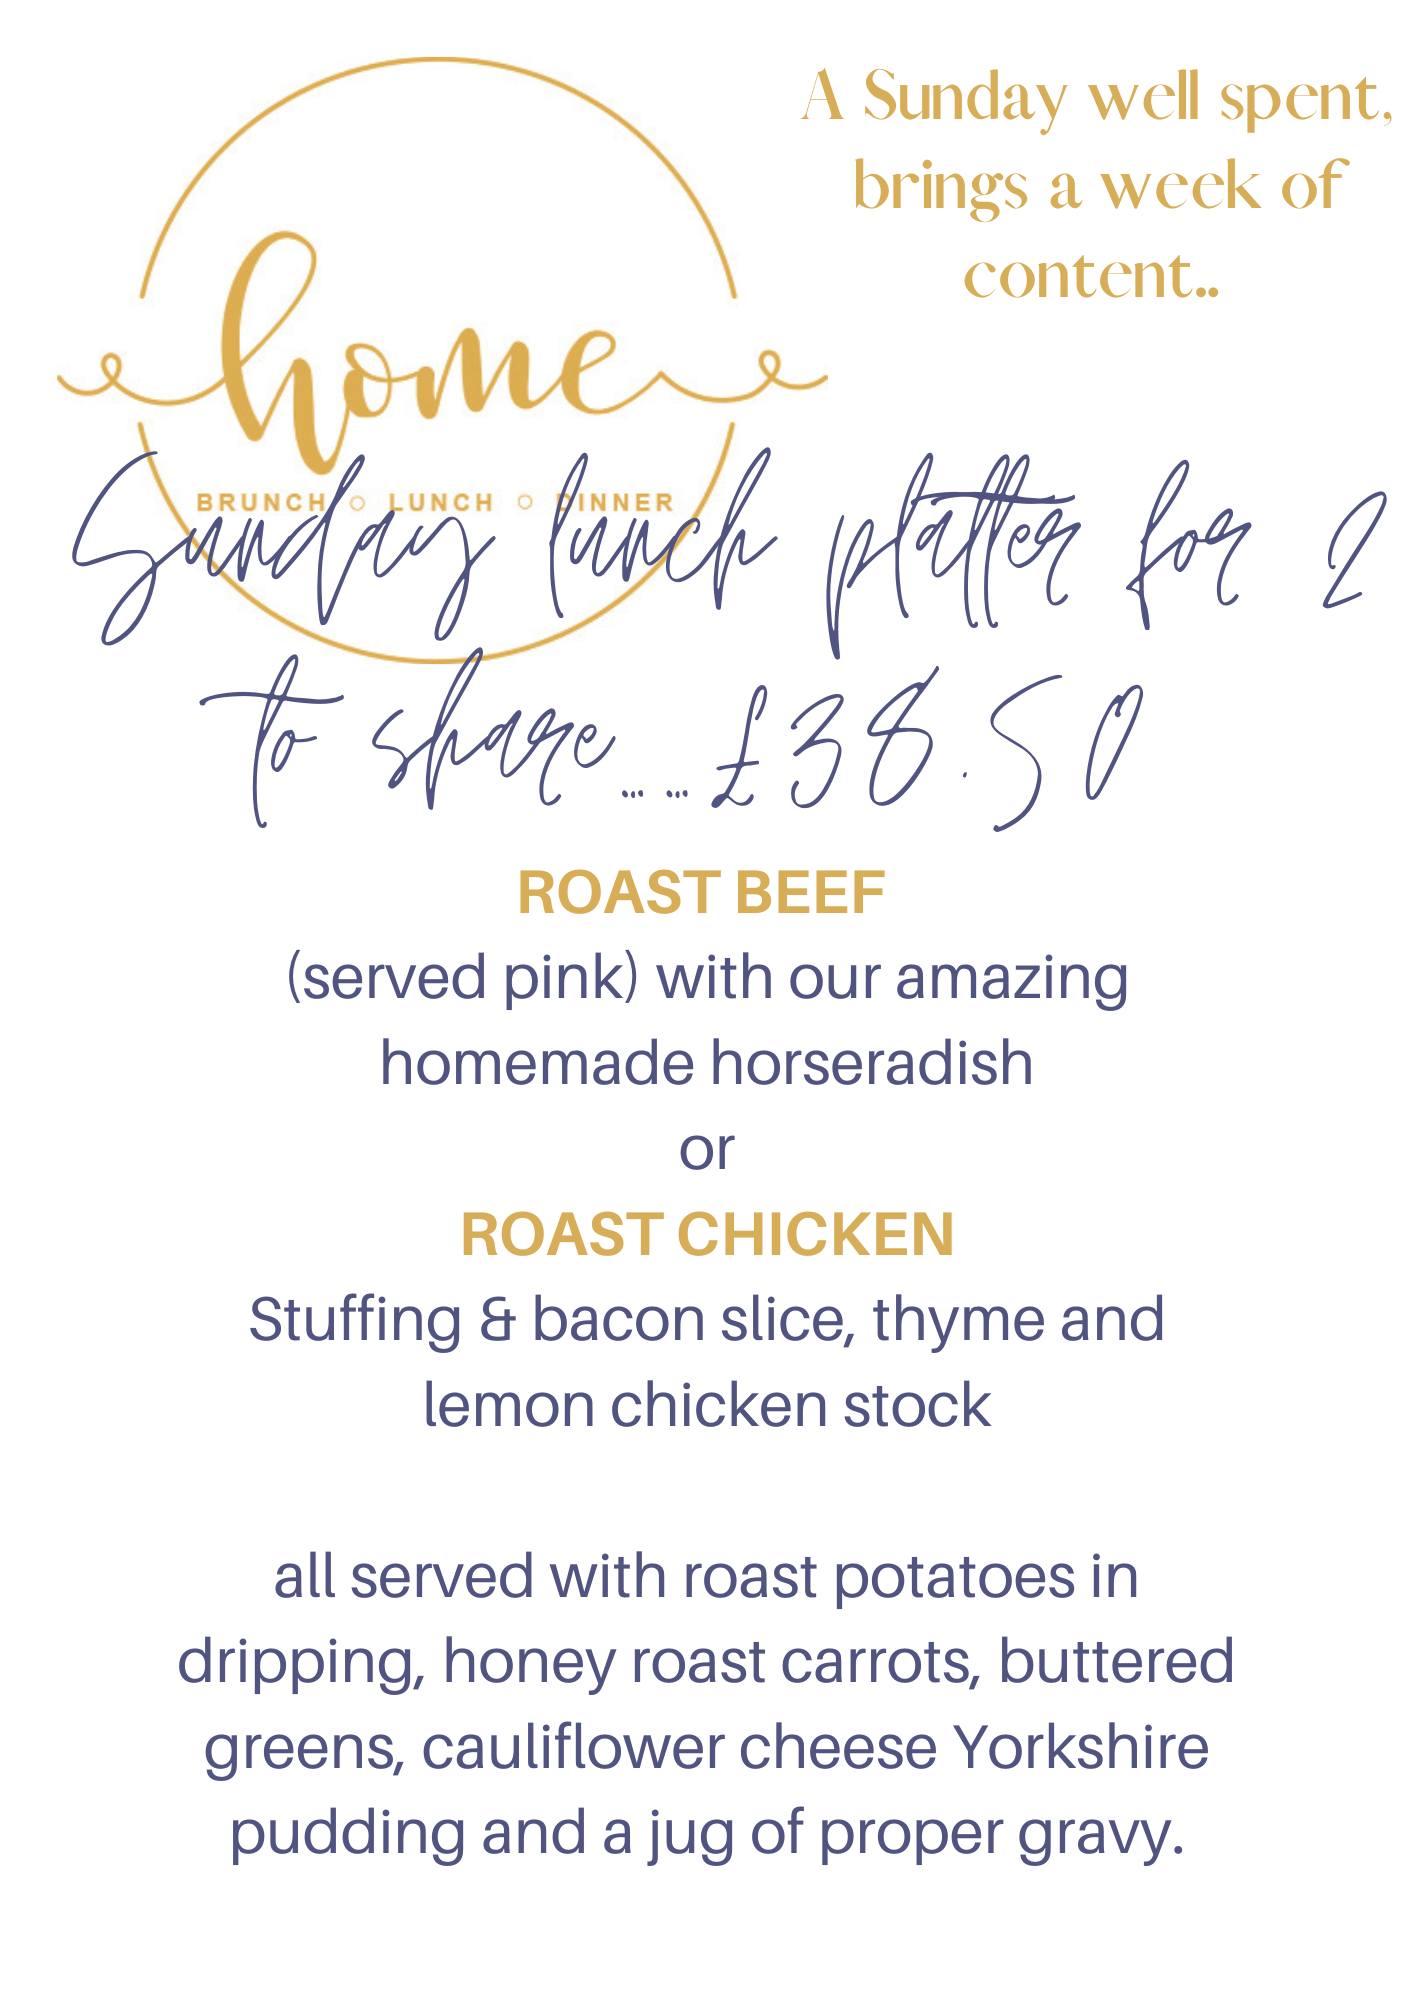 A Sunday well spent,
brings a week of
content..
home
BRUNCH ○ LUNCH ○ DINNER
Sunday lunch platter for 2
to share......£38.50
ROAST BEEF
(served pink) with our amazing
homemade horseradish
or
ROAST CHICKEN
Stuffing & bacon slice, thyme and
lemon chicken stock
all served with roast potatoes in
dripping, honey roast carrots, buttered
greens, cauliflower cheese Yorkshire
pudding and a jug of proper gravy.